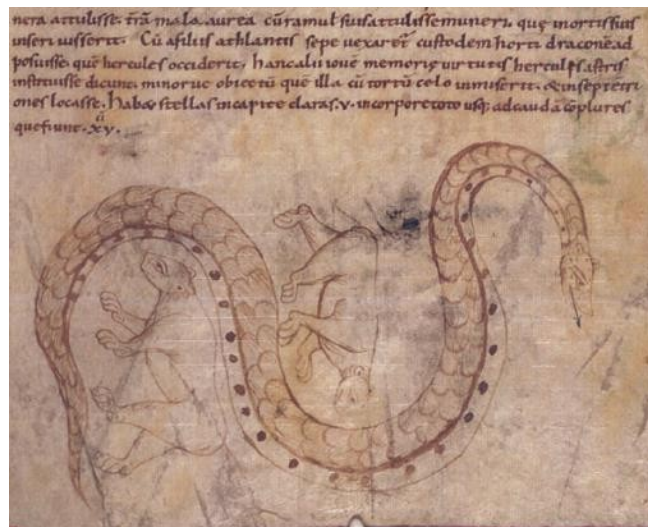 nera attulisse. t̄rā mala aurea cū ramul suis attulisse muneri. quę inortis suis
inseri iusserit. Cū a filiis athlantis sepe uexaret᷑ custodem horti draconē ad
posuisse. quē hercules occiderit. hanc alii iouē memorię uirtutis herculęs astris
instruisse dicunt. minoruę obiectū quē illa cū tortū celo inmiserit. & in septētri
ones locasse. habet stellas in capite claras. v. in corpore toto usq; ad caudā cōplures
que fiunt. xv.